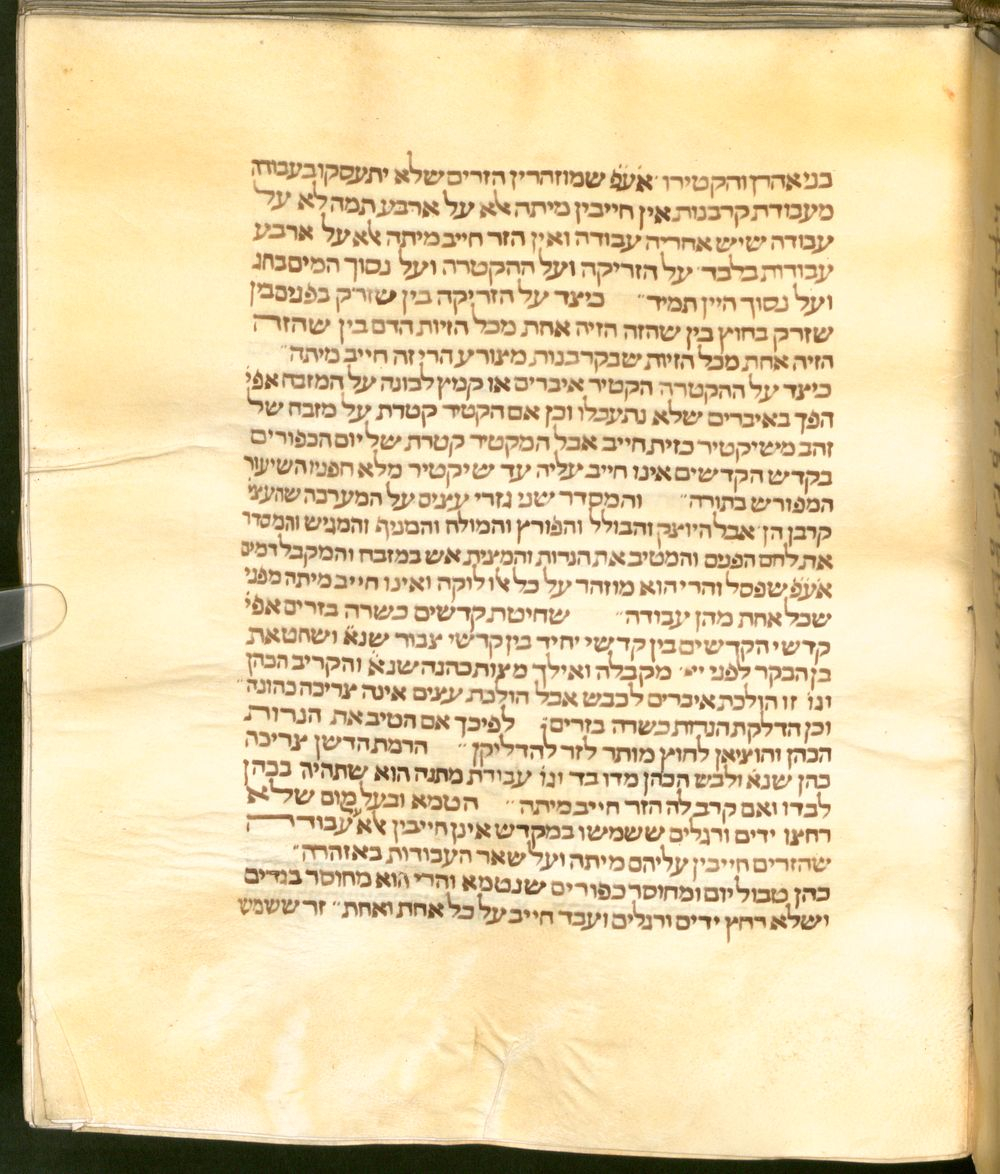 בני אהרן והקטירו׳ אע״פ שמוזהרין הזרים שלא יתעסקו בעבודה
מעבודת קרבנות אין חייבין מיתה אלא על ארבע תמה לא על
עבודה שיש אחריה עבודה ואין הזר חייב מיתה אלא על ארבע
עבודות בלבד׳ על הזריקה ועל ההקטרה ועל נסוך המים בחג
ועל נסוך היין תמיד״ כיצד על הזריקה בין שזרק בפנים בין
שזרק בחוץ בין שהזה הזיה אחת מכל הזיות הדם בין שהזה
הזיה אחת מכל הזיות שבקרבנות מצורע הרי זה חייב מיתה״
כיצד על ההקטרה הקטיר איברים או קמץ לבונה על המזבח אפי׳
הפך באיברים שלא נתעכלו וכן אם הקטיר קטרת על מזבח של
זהב משיקטיר כזית חייב אבל המקטיר קטרת של יום הכפורים
בקדש הקדשים אינו חייב עליה עד שיקטיר מלא חפניו השיעור
המפורש בתורה״ והמסדר שני גזרי עצים על המערכה שהעצי׳
קרבן הן׳ אבל היוצק והבולל והפורץ והמולח והמניף והמגיש והמסדר
את לחם הפנים והמטיב את הנרות והמצית אש במזבח והמקבל דמים
אע״פ שפסל והרי הוא מוזהר על כל אלו לוקה ואינו חייב מיתה מפני
שכל אחת מהן עבודה״ שחיטת קדשים כשרה בזרים אפי׳
קדשי הקדשים בין קדשי יחיד בין קדשי צבור שנא׳ ושחט את
בן הבקר לפני ייי׳ מקבלה ואילך מצות כהנה שנא׳ והקריב הכהן
וגו׳ זו הולכת איברים לכבש אבל הולכת עצים אינה צריכה כהונה״
וכן הדלקת הנרות כשרה בזרים׃ לפיכך אם הטיב את הנרות
הכהן והוציאן לחוץ מותר לזר להדליקן״ הרמת הדשן צריכה
כהן שנא׳ ולבש הכהן מדו בד וגו׳ עבודת מתנה הוא שתהיה בכהן
לבדו ואם קרב לה הזר חייב מיתה״ הטמא ובעל מום שלא
רחצו ידים ורגלים ששמשו במקדש אינן חייבין אלא על עבודה
שהזרים חייבין עליהם מיתה ועל שאר העבודות באזהרה״
כהן טבול יום ומחוסר כפורים שנטמא והרי הוא מחוסר בגדים
ושלא רחץ ידים ורגלים ועבד חייב על כל אחת ואחת״ זר ששמש